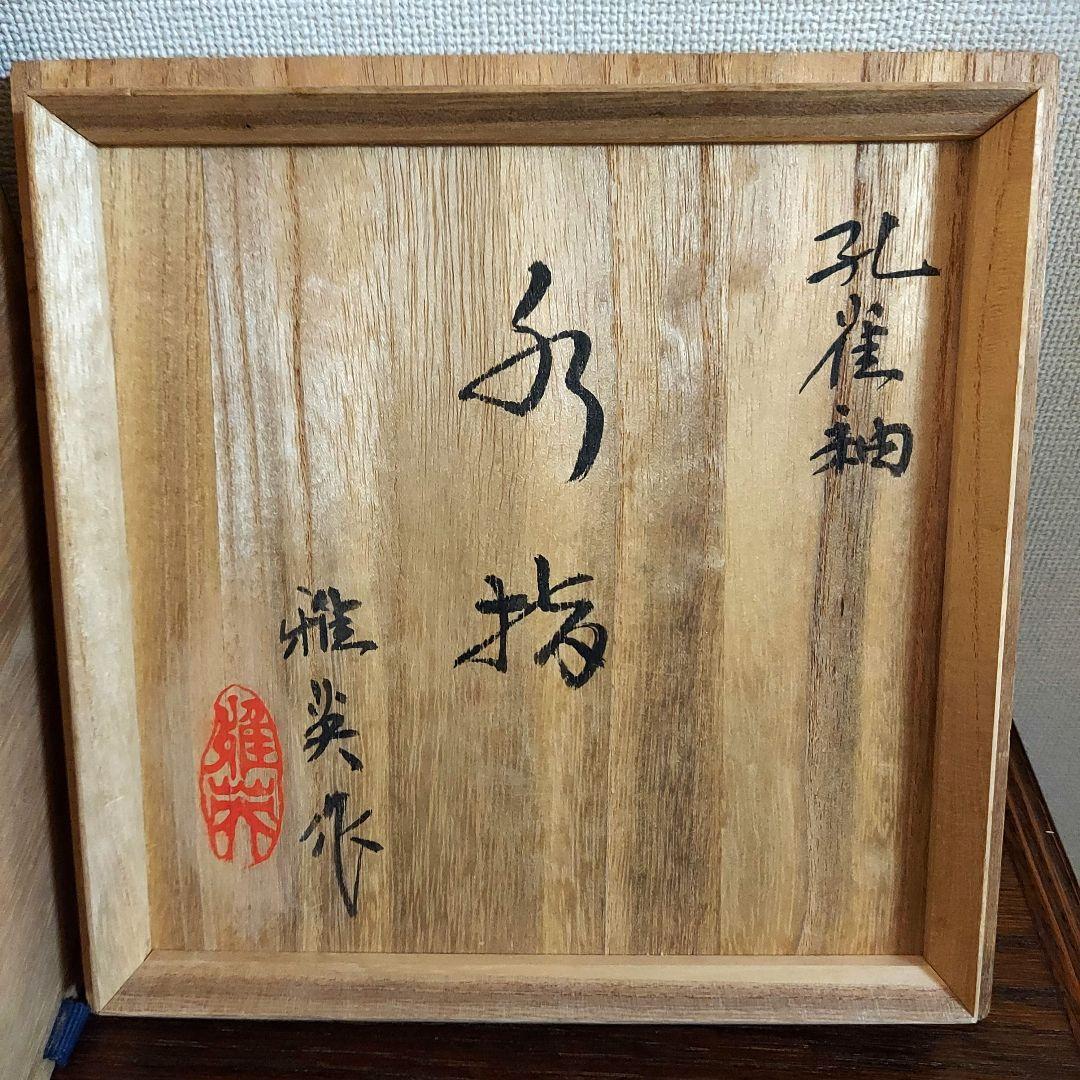 孔雀釉
水指
雅英作
雅英